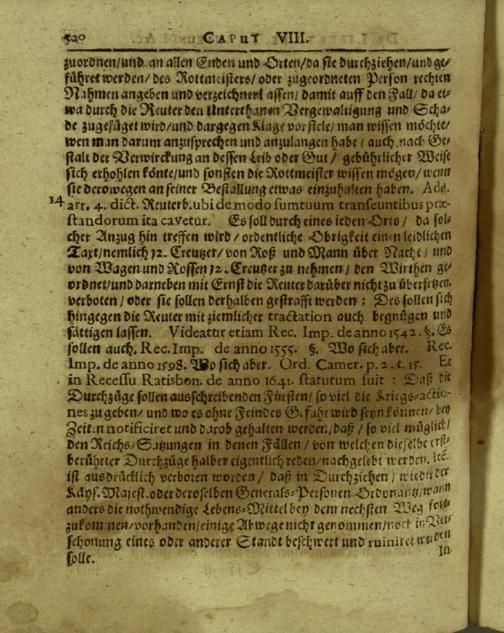 520 CAPUT VIII.
zuordnen/und an allen Enden und Orten/da sie durchziehen/und ge-
führet werden/ des Rottmeisters/ oder zugeordneten Person rechten
Nahmen angeben und verzeichnen lassen/ damit auff den Fall/ da et-
wa durch die Reuter den Unterthanen Vergewaltigung und Scha-
de zugefüget wird/und dargegen Klage vorfiele/ man wissen möchte/
wen man darum anzusprechen und anzulangen habe/ auch nach Ge-
stalt der Verwirckung an dessen Leib oder Gut/ gebührlicher Weise
sich erhohlen könte/und sonsten die Rottmeister wissen mögen/ wenn
sie derowegen an seiner Bestallung etwas einzuhalten haben. Add.
14 art. 4. dict. Reuterb. ubi de modo sumtuum transeuntibus præ-
standorum ita cavetur. Es soll durch eines ieden Orts/ da sol-
cher Anzug hin treffen wird/ ordentliche Obrigkeit einen leidlichen
Taxt/nemlich 12. Creutzer/ von Roß und Mann über Nacht/ und
von Wagen und Rossen 12. Creutzer zu nehmen/ den Wirthen ge-
ordnet/und darneben mit Ernst die Reuter darüber nicht zu übersetzen
verboten/ oder sie sollen derhalben gestrafft werden: Des sollen sich
hingegen die Reuter mit ziemlicher tractation auch begnügen und
sättigen lassen. Videatur etiam Rec. Imp. de anno 1542. §. Es
sollen auch. Rec. Imp. de anno 1555. §. Wo sich aber. Rec.
Imp. de anno 1598. Wo sich aber. Ord. Camer. p. 2. t. 15. Et
in Recessu Ratisbon. de anno 1641. statutum fuit: Daß die
Durchzüge sollen ausschreibenden Fürsten/ so viel die Kriegs-actio-
nes zu geben/ und wo es ohne Feindes Gefahr wird seyn können/ bey
Zeiten notificiret und darob gehalten werden/daß/ so viel müglich/
den Reichs-Satzungen in denen Fällen/ von welchen dieselbe erst-
berührter Durchzüge halber eigentlich reden/nachgelebt werden.
ist ausdrücklich verboren worden/ daß in Durchziehen/ wieder der
Käys. Majest. oder deroselben Generals-Personen Ordonantz/wann
anders die nothwendige Lebens-Mittel bey dem nechsten Weg fort-
zukommen/vorhanden/einige Abwege nicht genommen/noch in Ver-
schonung eines oder anderer Standt beschwert und ruiniret werden
solle.
In